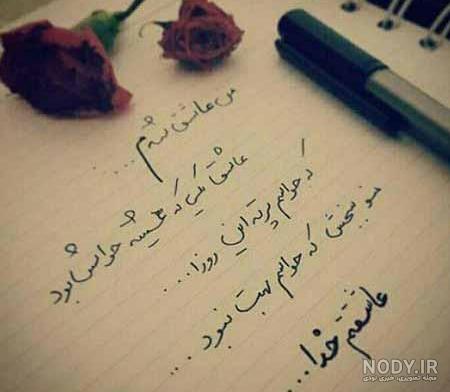 من عاشق شدم ....
عاشق یکی که همیشه حواسش بود
که حواسم پرته این روزا ....
منو ببخش که حواسم بهت نبود ....
عاشقتم خدا ...
NODY.IR
مجله تصویری، خبری نودی